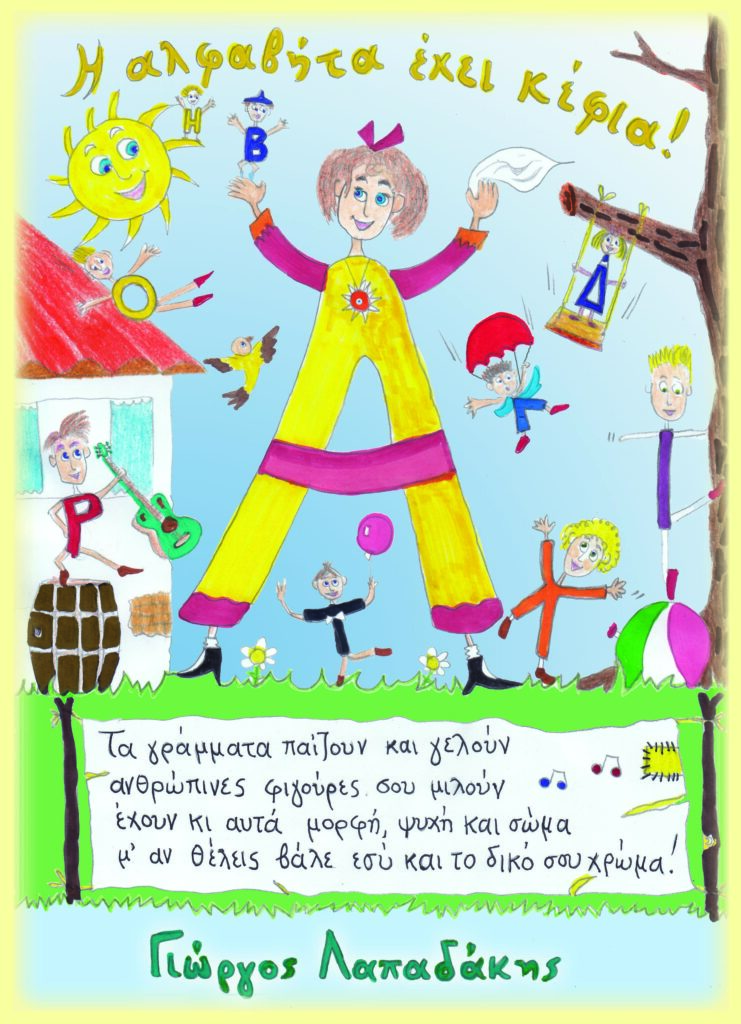 Η αλφαβήτα έχει κέφια!
Η
Β
Ο
Δ
Ρ
Τα γράμματα παίζουν και γελούν
ανθρώπινες φιγούρες σου μιλούν
έχουν κι αυτά μορφή, ψυχή και σώμα
μ' αν θέλεις βάλε εσύ και το δικό σου χρώμα!
Γιώργος Λαπαδάκης